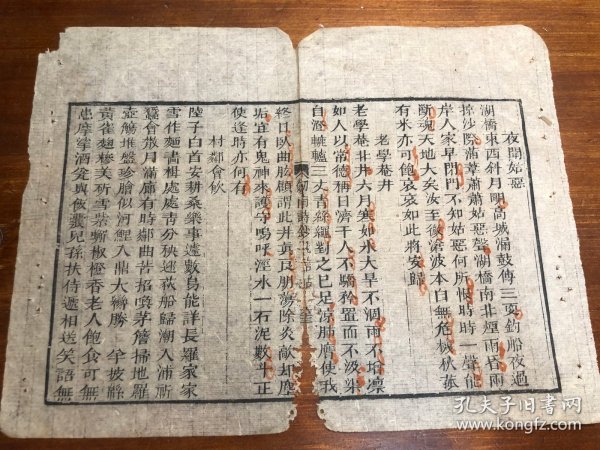 夜聞姑惡
湖橋東西斜月明高城漏鼓傳三更釣船夜過
掠沙際蒲葦蕭蕭姑惡聲湖橋南北煙雨昏兩
岸人家早閉門不知姑惡何所恨時時一聲能
斷魂天地大矣汝至微滄波本自無危機秋菰
有米亦可飽哀哀如此將安歸
老學菴井
老學菴北井六月寒如水大旱不涸雨不增凜
如人以常德稱日濟千人不驕矜置而不汲渠
自澄轆轤三丈青絲繩對之已足涼肺膺使我
劍南詩鈔
終日臥曲肱顧謂此井真良朋蕩除炎歊却塵
垢宜有鬼神來護守嗚呼涇水一石泥數斗正
使逢時亦何有
村鄰會飲
陸子白首安耕桑樂事遽數烏能詳長羅家家
雪作麵畫楫處處青分秧速荻船歸潮入浦祈
蠶會散月滿廊有時鄰曲苦招喚茅簷掃地羅
壺觴堆盤珍膾似河鯉入鼎大臠勝 牟披綿
黃雀麴糝美斫雪紫蟹椒橙香老人飽食可無
患摩挲酒瓮與飯囊兒孫扶侍遞相送笑語無
孔夫子旧书网
www.kongfz.com